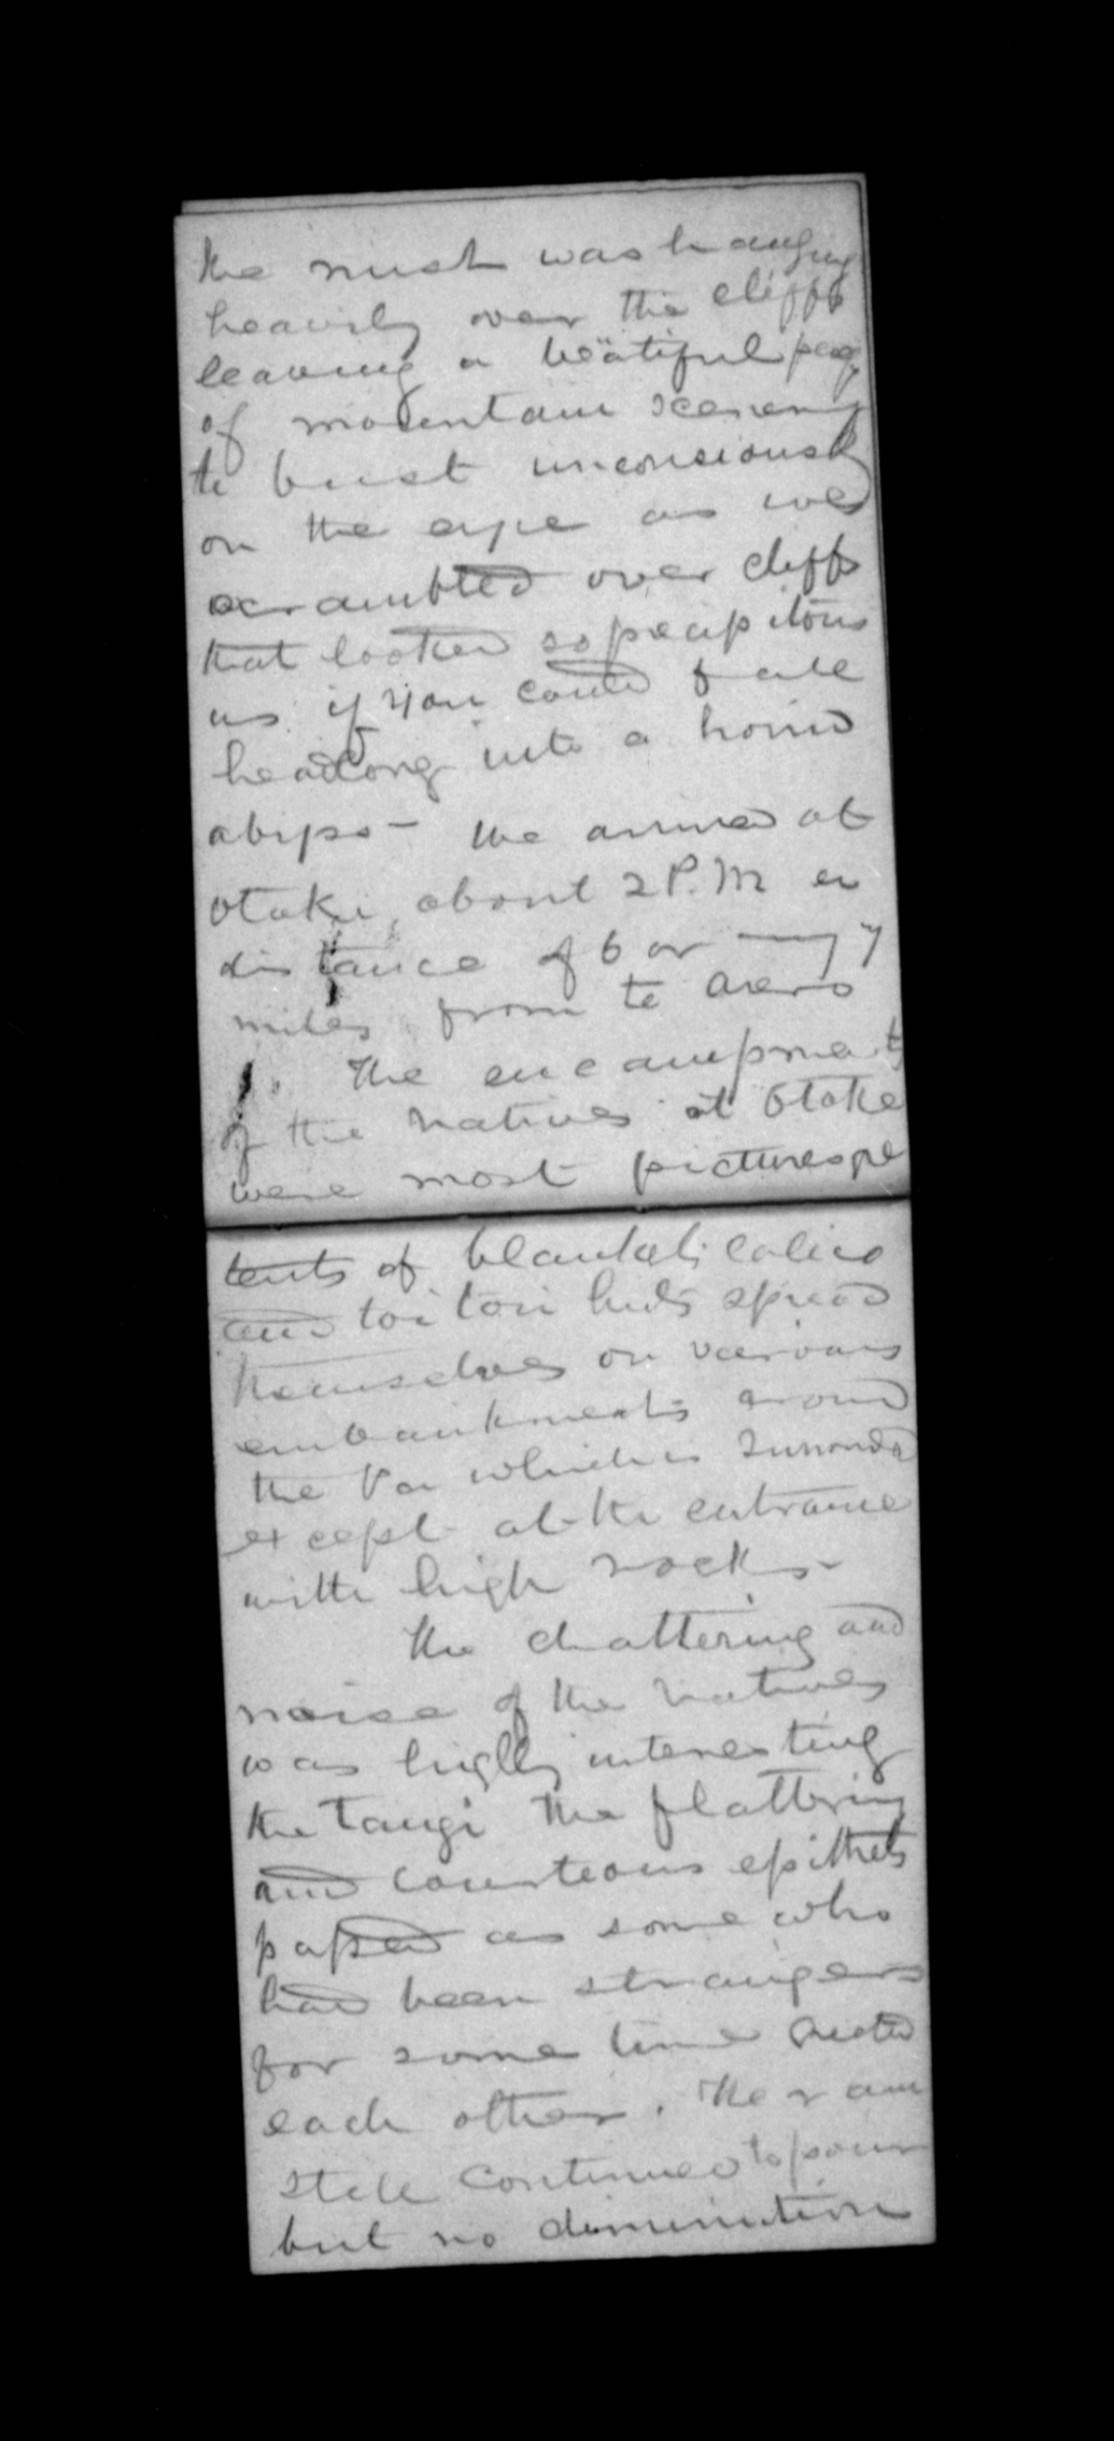 the mist was hanging
heavily over the cliffs
leaving a beatiful peep
of mountain scenery
to burst unconsciously
on the eye as we
scrambled over cliffs
that looked so precipitous
as if you could fall
headlong into a horrid
abyss - We arrived at
Otaki about 2 P.M a
distance of 6 or 7
miles from te Arero
The encampment
of the natives at Otake
were most picturesque
tents of blankets calico
and toi toi huts spread
themselves on various
embankments around
the Pa which is surrounded
except at the entrance
with high rocks -
The chattering and
noise of the natives
was highly interesting
the Tangi the flattering
and courteous epithets
passed as some who
had been strangers
for some time
each other. The rain
still continued to pour
but no diminution